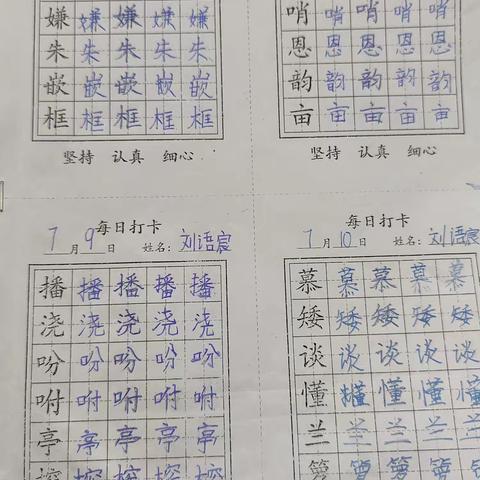 嫌 嫌 嫌 嫌 嫌
朱 朱 朱 朱 朱
嵌 嵌 嵌 嵌 嵌
框 框 框 框 框
坚持 认真 细心
哨 哨 哨 哨 哨
恩 恩 恩 恩 恩
韵 韵 韵 韵 韵
亩 亩 亩 亩 亩
坚持 认真 细心
每日打卡
7月9日 姓名:刘语宸
播 播 播 播 播
浇 浇 浇 浇 浇
吩 吩 吩 吩 吩
咐 咐 咐 咐 咐
亭 亭 亭 亭 亭
挖 挖 挖 挖 挖
每日打卡
7月10日 姓名:刘语宸
慕 慕 慕 慕 慕
矮 矮 矮 矮 矮
谈 谈 谈 谈 谈
懂 懂 懂 懂 懂
兰 兰 兰 兰 兰
箩 箩 箩 箩 箩